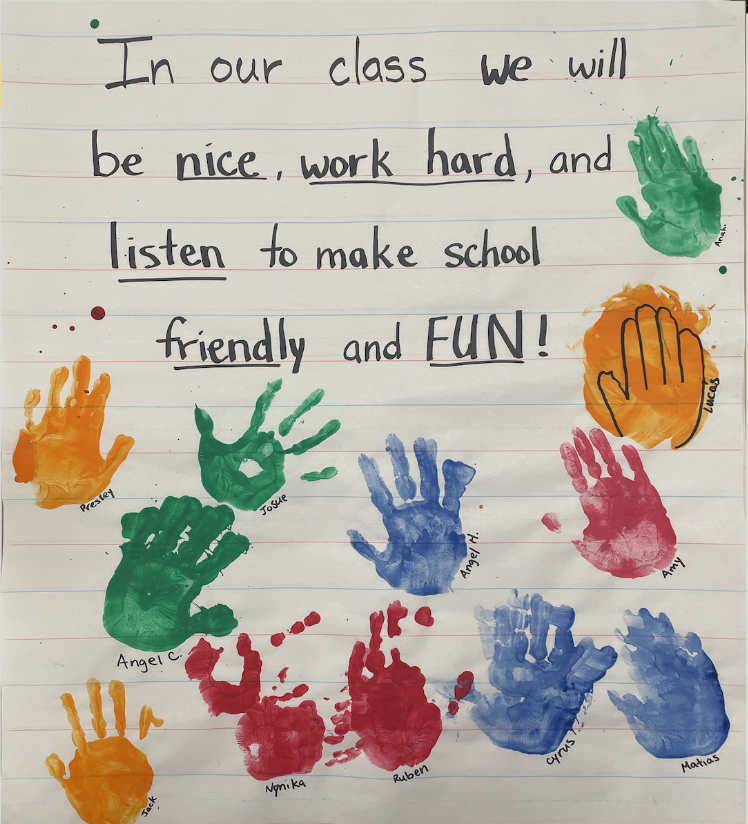 In our class we will
be nice, work hard, and
Anahi
listen to make school
friendly and FUN!
Lucas
Presley
Josue
Angel H.
Amy
Angel C.
Nonika
Ruben
Cyrus
Matias
Jack